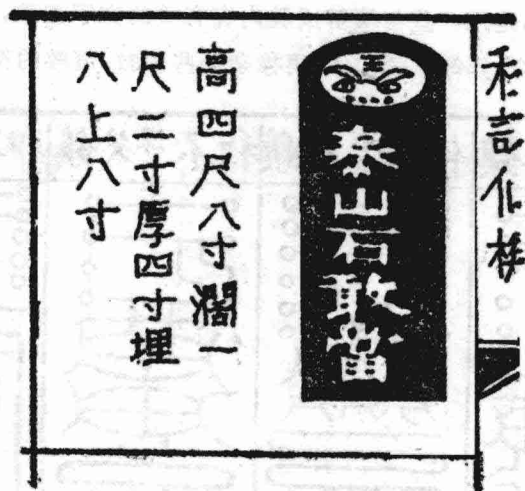 王
泰山石敢當
高四尺八寸濶一
尺二寸厚四寸埋
八上八寸